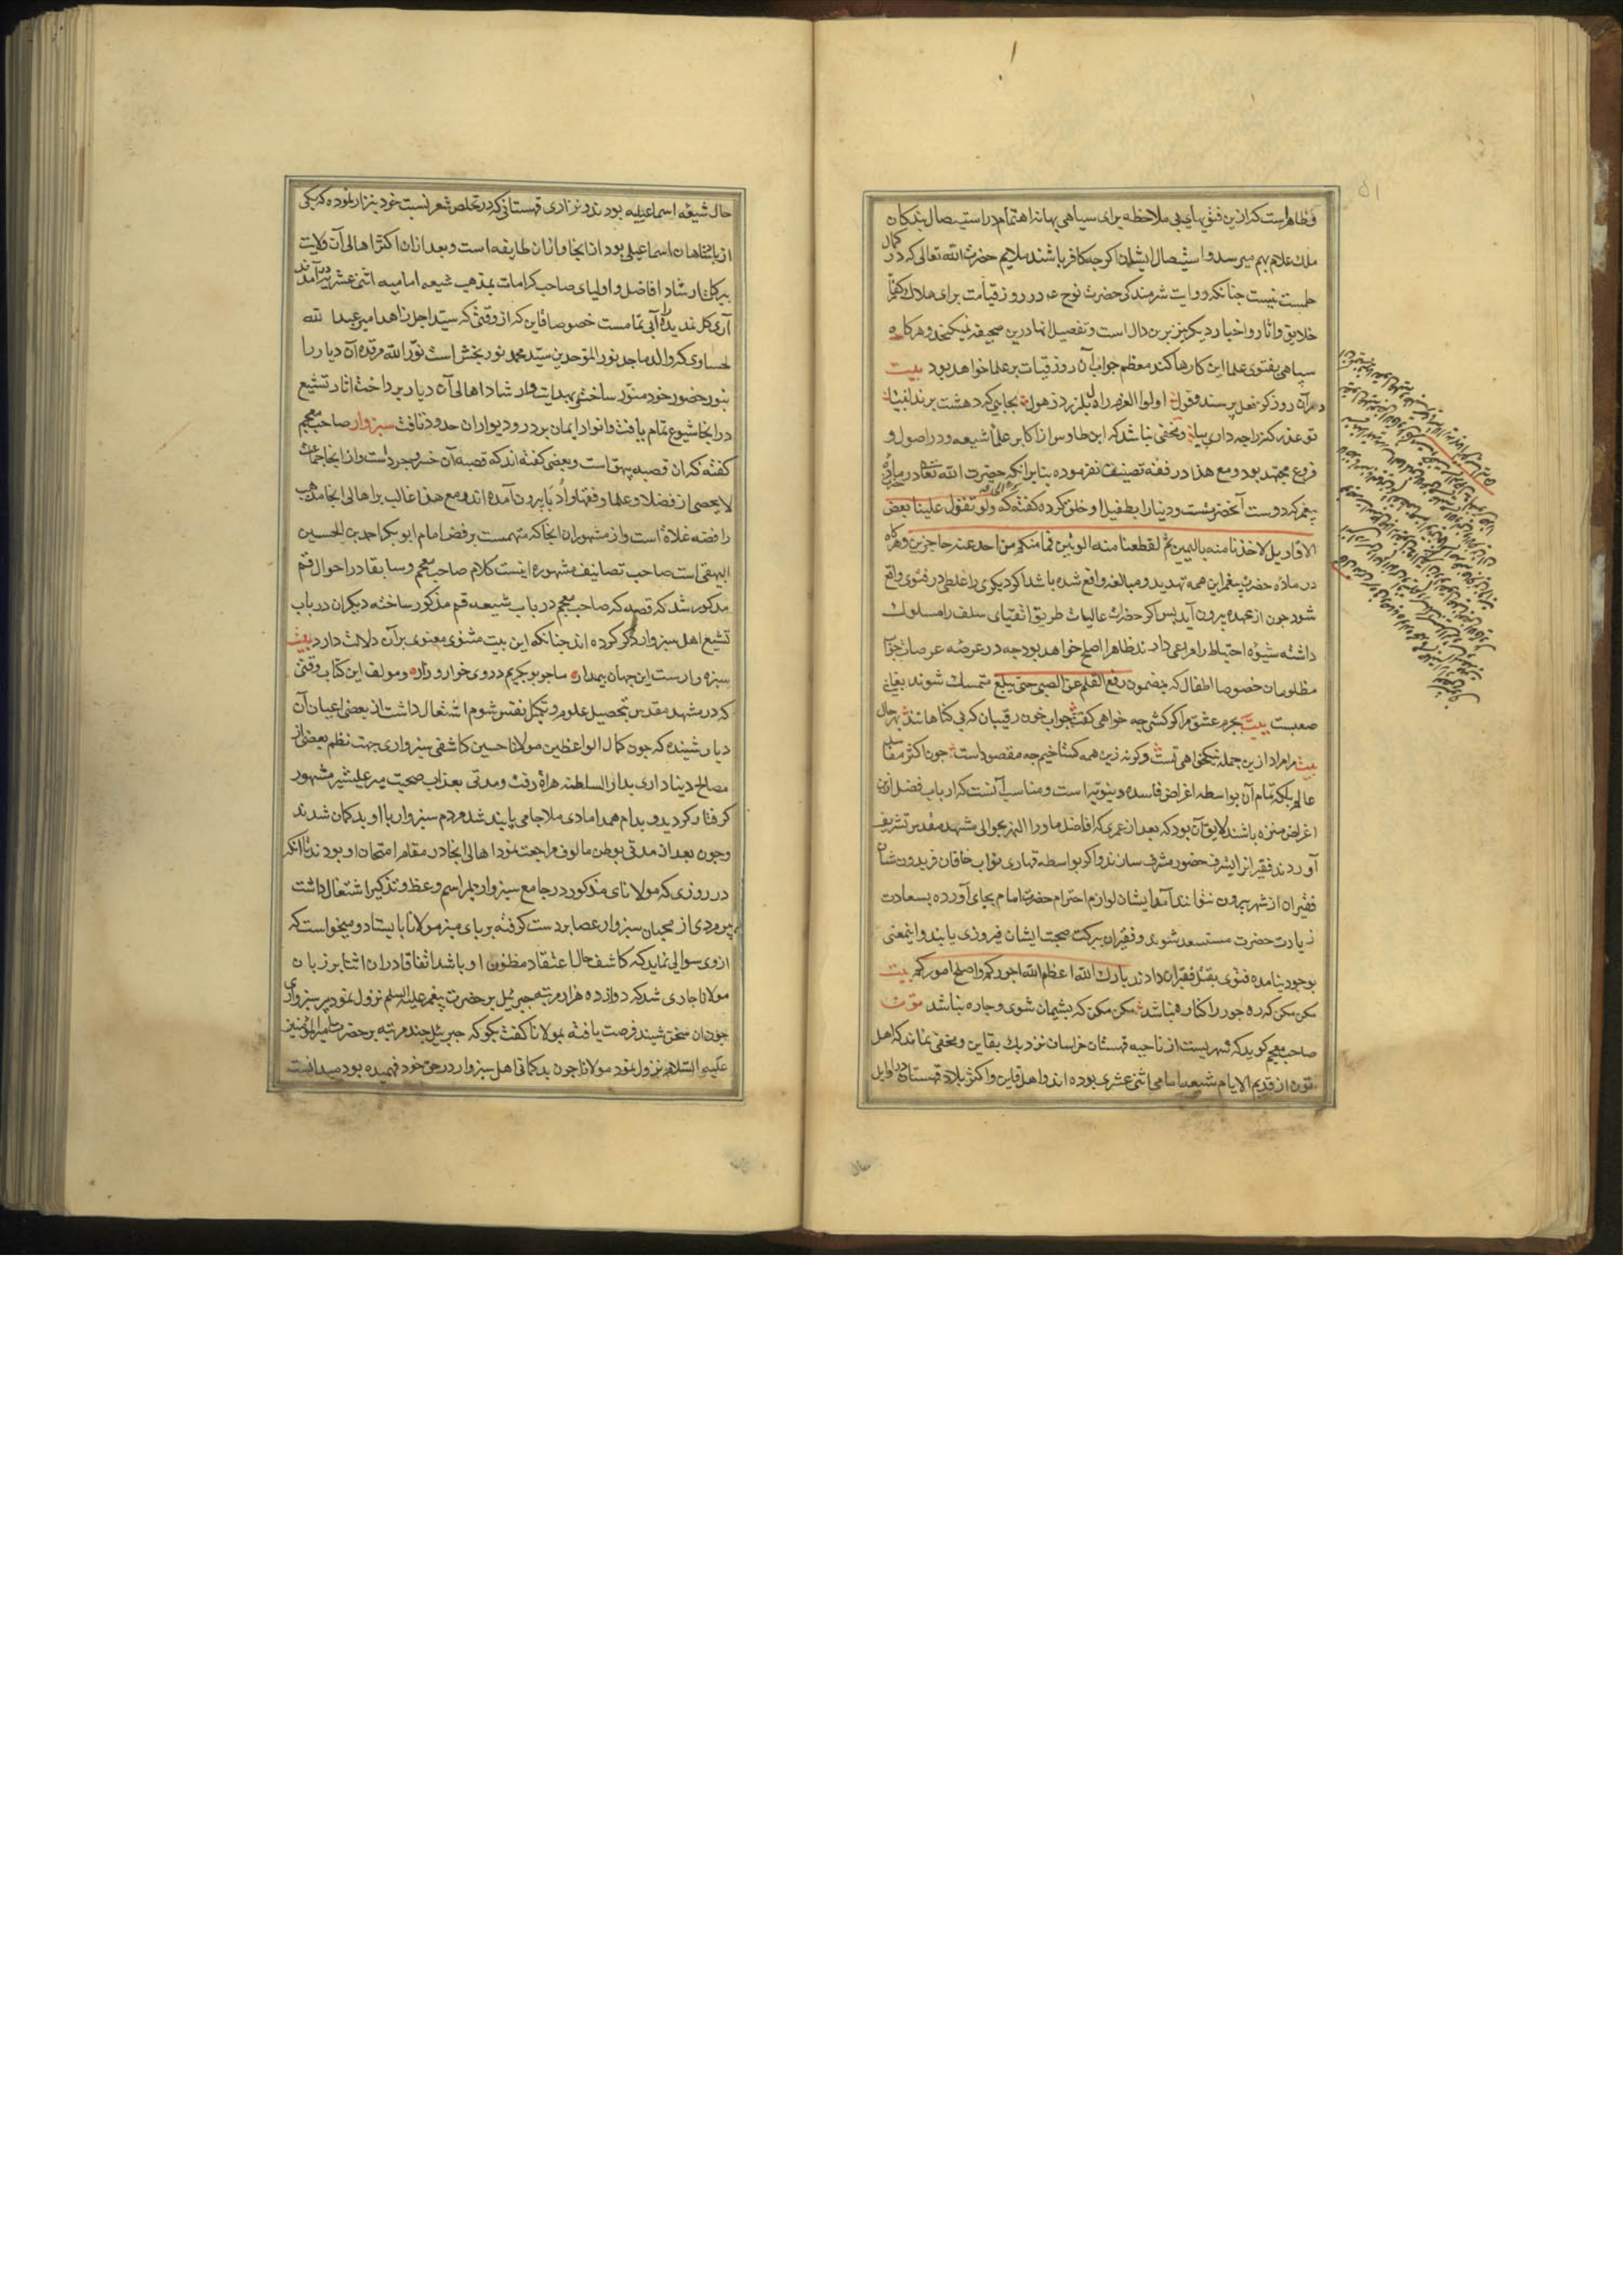 وظاهر است که ازین فتوی های بی ملاحظه برای سپاهی بهانه اهتمام در استیصال بندکان
ملک علام بهم میرسد و استیصال ایشان اکرچه کافر باشند ملایم حضرت الله تعالی که در کمال
حلمست نیست چنانکه روایت شرمندکی حضرت نوح عم در روز قیامت برای هلاک کفار
خلایق واثار واخبار دیکر نیز برین دال است وتفصیل انها درین صحیفه نمیکنجد وهرکاه
سپاهی بفتوی علما این کارها کند معظم جواب آن روز قیامت بر علما خواهد بود بیت
در آن روز کز فعل پرسند وقول اولوا العزم را دل بلرزد ز هول بجایی که دهشت برند انبیا
تو عذر کنه را چه داری بیا ومخفی نباشد که ابن طاوس از اکابر علما شیعه ودر اصول و
فروع مجتهد بود ومع هذا در فقه تصنیف نفرموده بنابر انکه حضرت الله تعالی در ماده
پیغمبر که دوست آنحضرتست ودنیا را بطفیل او خلق کرده کفته که ولو تقول علینا بعض
الاقاویل لاخذنا منه بالیمین ثم لقطعنا منه الوتین فما منکم من احد عنه حاجزین وهرکاه
در ماده حضرت پیغمبر این همه تهدید ومبالغه واقع شده باشد اکر دیکری را غلطی در فتوی واقع
شود چون از عهده بیرون آید پس اکر حضرات عالیات طریق اتقیای سلف را مسلوک
داشته شیوه احتیاط را مرعی دارند ظاهرا اصلح خواهد بود چه در عرضه عرصات جواب
مظلومان خصوصا اطفال که بمضمون رفع القلم عن الصبی حتی یبلغ متمسک شوند بغایت
صعبست بیت بجرم عشق مرا کر کشی چه خواهی کفت جواب خون رقیبان که بی کناهانند بهر حال
بیت مرا مراد ازین جمله نیکخواهی تست وکرنه زین همه کستاخیم چه مقصودست چون اکثر مفاسد
عالم بلکه تمام آن بواسطه اغراض فاسده دنیویه است ومناسب آنست که ارباب فضل ازین
اغراض منزه باشند لایق آن بود که بعد از عمری که افاضل ماورا النهر بحوالی مشهد مقدس تشریف
آوردند فقیرانرا بشرف حضور مشرف سازند واکر بواسطه قهاری نواب خاقان فریدون شان
فقیران از شهر بیرون نتوانند آمد ایشان لوازم احترام حضرت امام بجای آورده بسعادت
زیارت حضرت مستسعد شوند وفقیران ببرکت صحبت ایشان فیروزی یابند واینمعنی
بوجود نیامده فتوی بقتل فقیران دادند بارک الله اعظم الله اجورکم واصلح امورکم بیت
مکن مکن که ره جور را کناره نباشد مکن مکن که پشیمان شوی وچاره نباشد تون
صاحب معجم کوید که شهریست از ناحیه قهستان خراسان نزدیک بقاین ومخفی نماند که اهل
تون از قدیم الایام شیعه امامی اثنی عشری بوده اند واهل قاین واکثر بلاد قهستان در اوایل
۵۱
حال شیعه اسماعیلیه بودند ونزاری قهستانی که در تخلص شعر نسبت خود بنزار نموده که یکی
از پادشاهان اسماعیلی بود از انجا واز ان طایفه است وبعد ازان اکثر اهالی آن ولایت
ببرکت ارشاد افاضل واولیای صاحب کرامات بمذهب شیعه امامیه اثنی عشریه در آمدند
آری کل ندیده را آبی تمامست خصوصا قاین که از وقتی که سید اجل زاهد امیر عبد الله
لحساوی که والد ماجد نور الموحدین سید محمد نوربخش است نور الله مرقده آن دیار را
بنور حضور خود منور ساخت بهدایت وارشاد اهالی آن دیار پرداخت اثار تشیع
در انجا شیوع تمام یافت وانوار ایمان بر در ودیوار ان حدود تافت سبزوار صاحب معجم
کفته که ان قصبه بیهق است وبعضی کفته اند که قصبه آن خسروجرد است واز انجا جماعت
لا یحصی از فضلا وعلما وفقها وادبا بیرون آمده اند ومع هذا غالب بر اهالی انجا مذهب
رافضه غلاة است واز مشهوران انجا که متهمست برفض امام ابو بکر احمد بن الحسین
البیهقی است صاحب تصانیف مشهوره اینست کلام صاحب معجم وسابقا در احوال قم
مذکور شد که قصه که صاحب معجم در باب شیعه قم مذکور ساخته دیکران در باب
تشیع اهل سبزوار ذکر کرده اند چنانکه این بیت مثنوی معنوی بر آن دلالت دارد بیت
سبزوارست این جهان بیمدار ما چو بوبکریم در وی خوار وزار ومولف این کتاب وقتی
که در مشهد مقدس بتحصیل علوم وتکمیل نفس شوم اشتغال داشت از بعضی اعیان آن
دیار شنیده که چون کمال الواعظین مولانا حسین کاشفی سبزواری جهت نظم بعضی از
مصالح دنیاداری بدار السلطنه هراة رفت ومدتی بعذاب صحبت میر علیشیر مشهور
کرفتار کردید وبدام همدامادی ملا جامی پایبند شد مردم سبزوار با او بدکمان شدند
وچون بعد از مدتی بوطن مالوف مراجعت نمود اهالی انجا در مقام امتحان او بودند تا انکه
در روزی که مولانای مذکور در جامع سبزوار بمراسم وعظ وتذکیر اشتغال داشت
پیرمردی از محبان سبزوار عصا بر دست کرفته بر پای منبر مولانا بایستاد ومیخواست که
از وی سوالی نماید که کاشف حال اعتقاد مظنون او باشد اتفاقا در ان اثنا بر زبان
مولانا جاری شد که دوازده هزار مرتبه جبرئیل بر حضرت پیغمبر علیه السلم نزول نمود پیر سبزواری
چون ان سخن شنید فرصت یافته بمولانا کفت بکو که جبرییل چند مرتبه بر حضرت امیر المومنین
علیه السلام نزول نمود مولانا چون بدکمانی اهل سبزوار در حق خود فهمیده بود میدانست